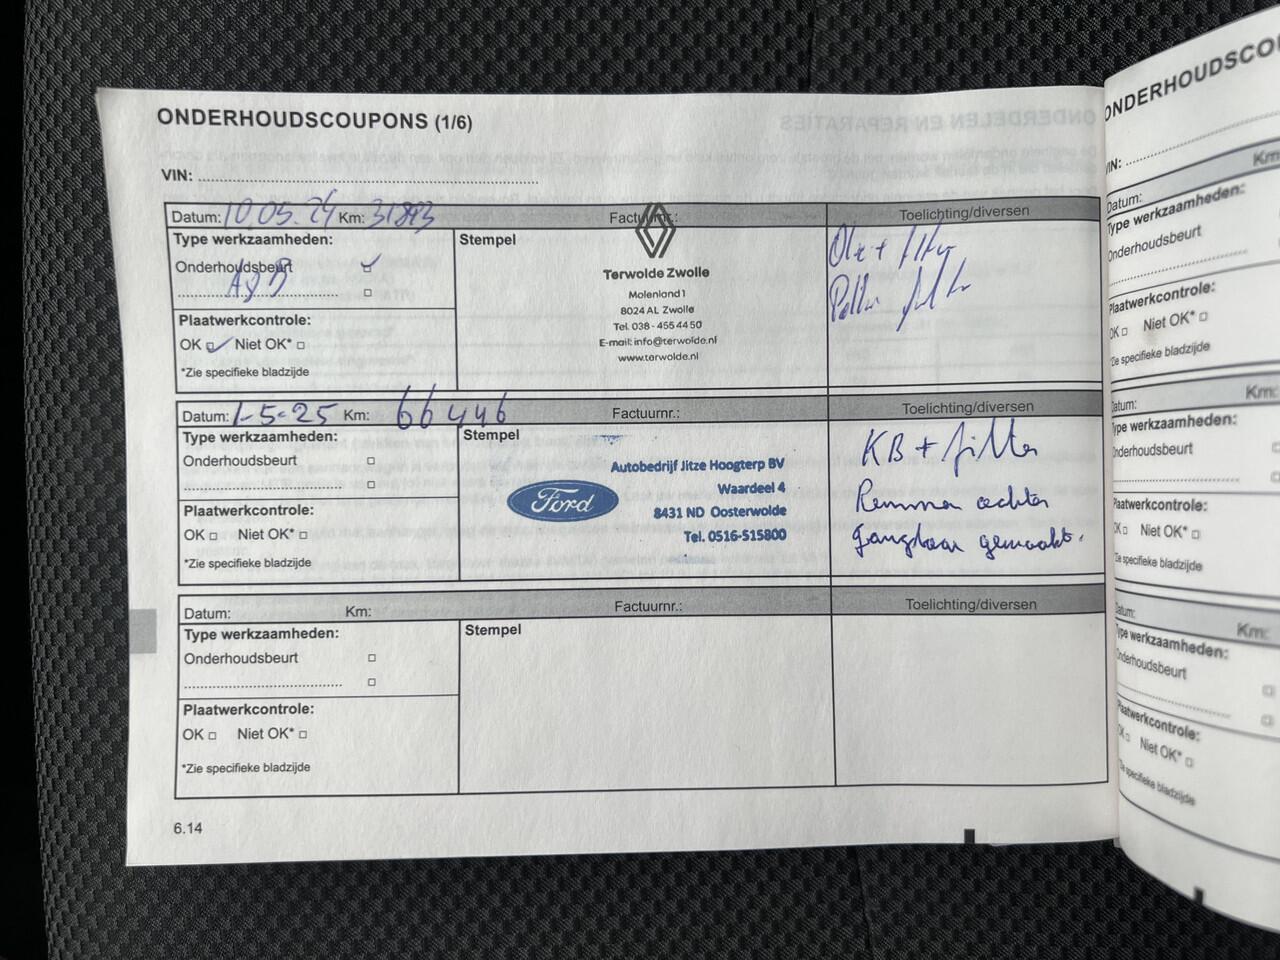 ONDERHOUDSCOUPONS (1/6)
VIN:
Datum: 10.05.24 Km: 31893 Factuurnr.: Toelichting/diversen
Type werkzaamheden:
Stempel
Onderhoudsbeurt
A&B
Plaatwerkcontrole:
OK Niet OK*
*Zie specifieke bladzijde
Terwolde Zwolle
Molenland 1
8024 AL Zwolle
Tel. 038 - 455 44 50
E-mail: info@terwolde.nl
www.terwolde.nl
Olie + filter
Datum: 1-5-25 Km: 66446 Factuurnr.: Toelichting/diversen
Type werkzaamheden:
Stempel
Onderhoudsbeurt
Plaatwerkcontrole:
OK Niet OK*
*Zie specifieke bladzijde
Ford
Autobedrijf Jitze Hoogterp BV
Waardeel 4
8431 ND Oosterwolde
Tel. 0516-515800
KB + filter
Remmen achter
gangbaar gemaakt.
Datum: Km: Factuurnr.: Toelichting/diversen
Type werkzaamheden:
Stempel
Onderhoudsbeurt
Plaatwerkcontrole:
OK Niet OK*
*Zie specifieke bladzijde
6.14
ONDERHOUDSCOU
VIN:
Datum: Km:
Type werkzaamheden:
Onderhoudsbeurt
Plaatwerkcontrole:
OK Niet OK*
*Zie specifieke bladzijde
Datum: Km:
Type werkzaamheden:
Onderhoudsbeurt
Plaatwerkcontrole:
OK Niet OK*
*Zie specifieke bladzijde
Datum: Km:
Type werkzaamheden:
Onderhoudsbeurt
Plaatwerkcontrole:
OK Niet OK*
*Zie specifieke bladzijde